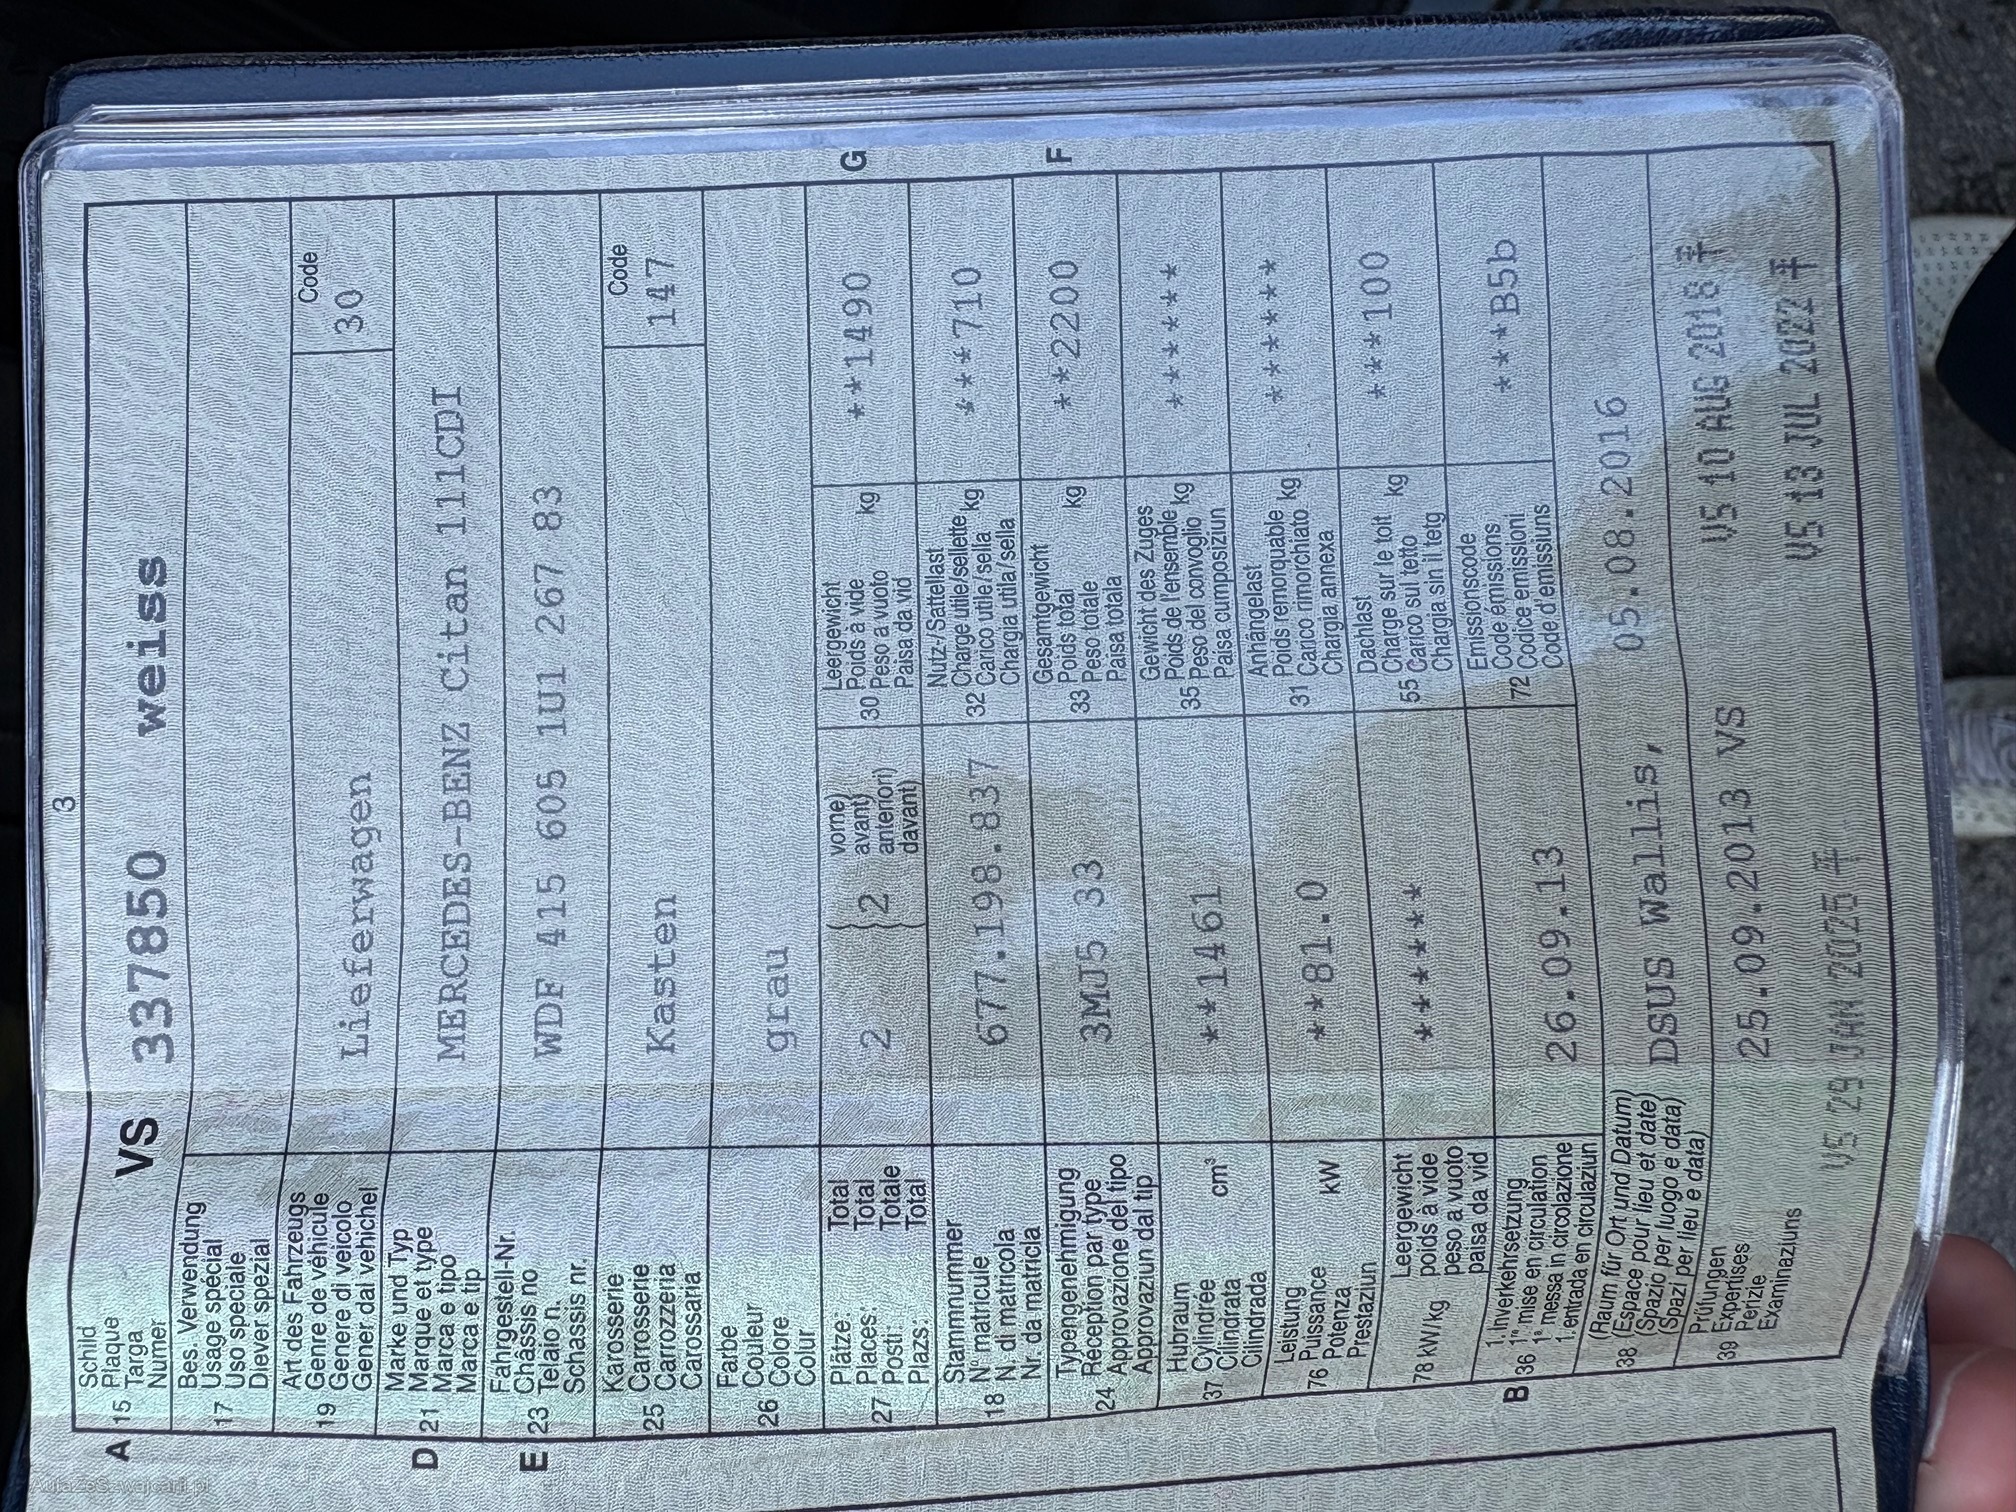 3
A 15 Schild
Plaque
Targa
Numer
VS 337850 weiss
17 Bes. Verwendung
Usage spécial
Uso speciale
Diever spezial
19 Art des Fahrzeugs
Genre de véhicule
Genere di veicolo
Gener dal vehichel
Lieferwagen
Code
30
D 21 Marke und Typ
Marque et type
Marca e tipo
Marca e tip
MERCEDES-BENZ Citan 111CDI
E 23 Fahrgestell-Nr.
Châssis no
Telaio n.
Schassis nr.
WDF 415 605 1U1 267 83
25 Karosserie
Carrosserie
Carrozzeria
Carossaria
Kasten
Code
147
26 Farbe
Couleur
Colore
Colur
grau
27 Plätze: Total
Places: Total
Posti: Totale
Plazs: Total
2
2
vorne
avant
anteriori
davant
30 Leergewicht
Poids à vide
Peso a vuoto
Paisa da vid
kg
**1490
G
18 Stammnummer
N° matricule
N. di matricola
Nr. da matricla
677.198.837
32 Nutz-/Sattellast
Charge utile/sellette
Carico utile/sella
Chargia utila/sella
kg
***710
24 Typengenehmigung
Réception par type
Approvazione del tipo
Approvaziun dal tip
3MJ5 33
33 Gesamtgewicht
Poids total
Peso totale
Paisa totala
kg
**2200
F
37 Hubraum
Cylindrée
Cilindrata
Cilindrada
cm³
**1461
35 Gewicht des Zuges
Poids de l'ensemble
Peso del convoglio
Paisa cumposiziun
kg
******
76 Leistung
Puissance
Potenza
Prestaziun
kW
**81.0
31 Anhängelast
Poids remorquable
Carico rimorchiato
Chargia annexa
kg
******
78 kW/kg Leergewicht
poids à vide
peso a vuoto
paisa da vid
******
55 Dachlast
Charge sur le toit
Carico sul tetto
Chargia sin il tetg
kg
***100
B 36 1. Inverkehrsetzung
1re mise en circulation
1a messa in circolazione
1. entrada en circulaziun
26.09.13
72 Emissionscode
Code émissions
Codice emissioni
Code d'emissiuns
***B5b
38 (Raum für Ort und Datum)
(Espace pour lieu et date)
(Spazio per luogo e data)
(Spazi per lieu e data)
DSUS Wallis, 05.08.2016
39 Prüfungen
Expertises
Perizie
Examinaziuns
25.09.2013 VS
VS 10 AUG 2018
VS 29 JAN 2025
VS 13 JUL 2022
AutaZeSzwajcarii.pl